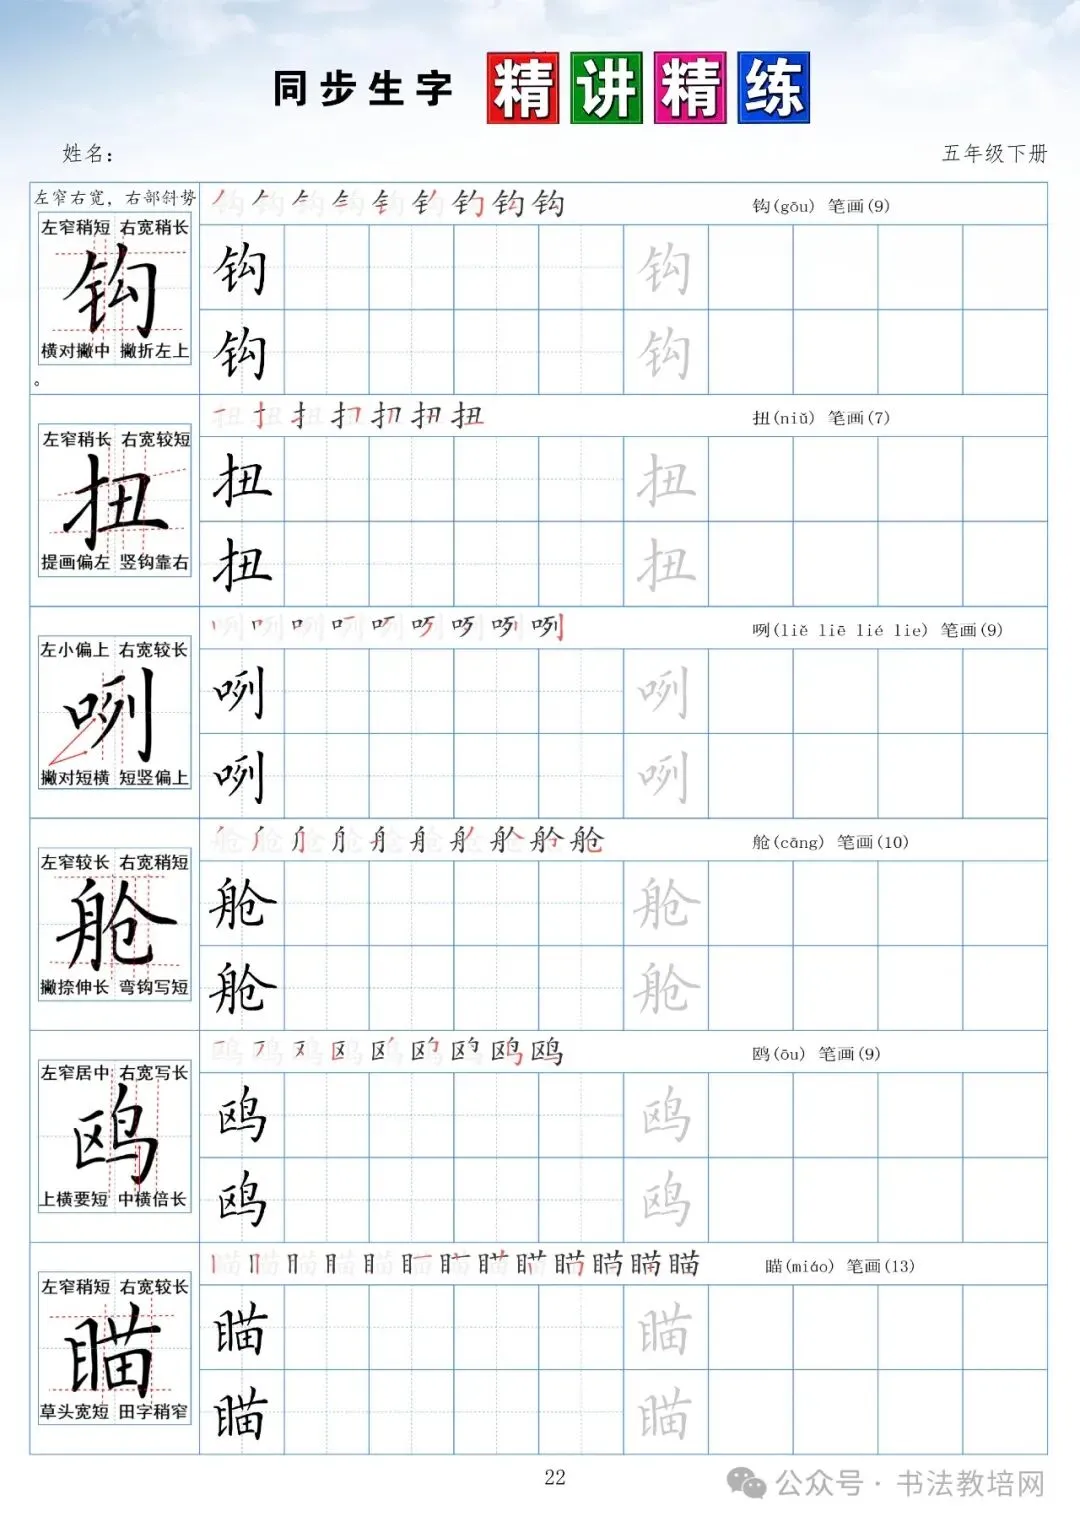 同步生字 精讲精练
姓名：
五年级下册
左窄右宽，右部斜势
。
左窄稍短 右宽稍长
钩
横对撇中 撇折左上
钩 钩(gōu) 笔画(9)
钩 钩
钩 钩
左窄稍长 右宽较短
扭
提画偏左 竖钩靠右
扭 扭(niǔ) 笔画(7)
扭 扭
扭 扭
左小偏上 右宽较长
咧
撇对短横 短竖偏上
咧 咧(liě liē lié lie) 笔画(9)
咧 咧
咧 咧
左窄较长 右宽稍短
舱
撇捺伸长 弯钩写短
舱 舱(cāng) 笔画(10)
舱 舱
舱 舱
左窄居中 右宽写长
鸥
上横要短 中横倍长
鸥 鸥(ōu) 笔画(9)
鸥 鸥
鸥 鸥
左窄稍短 右宽较长
瞄
草头宽短 田字稍窄
瞄 瞄(miáo) 笔画(13)
瞄 瞄
瞄 瞄
22
公众号·书法教培网